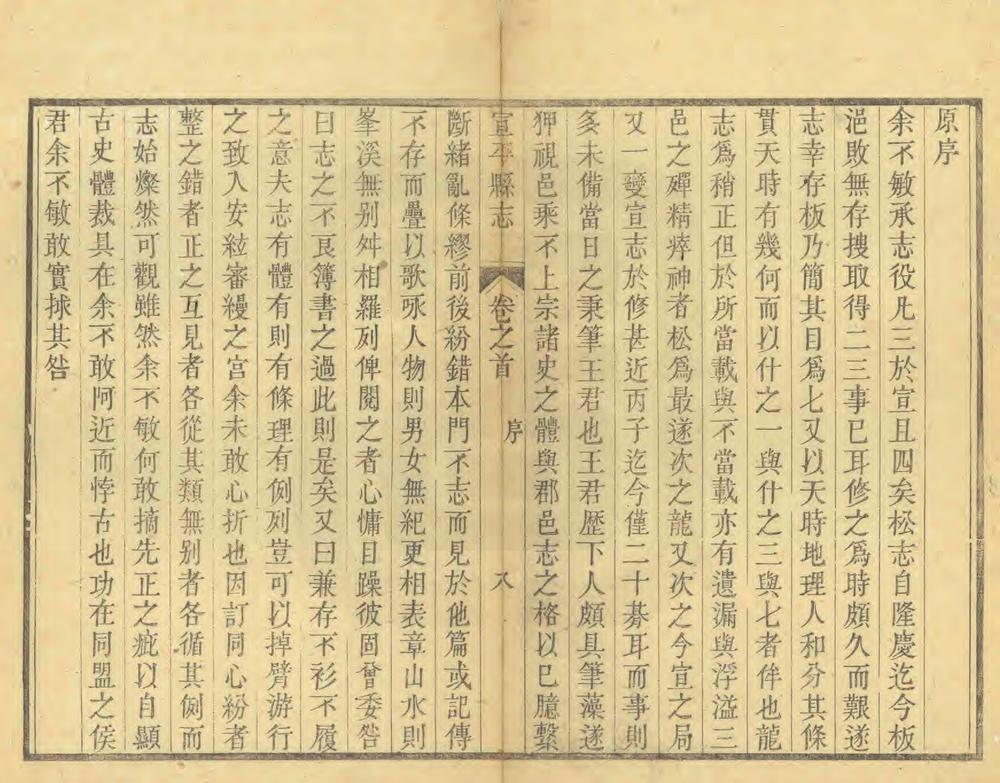 原序
余不敏承志役凡三於宣且四矣松志自隆慶迄今板
浥敗無存搜取得二三事已耳修之爲時頗久而艱遂
志幸存板乃簡其目爲七又以天時地理人和分其條
貫天時有幾何而以什之一與什之三與七者侔也龍
志爲稍正但於所當載與不當載亦有遺漏與浮溢三
邑之殫精瘁神者松爲最遂次之龍又次之今宣之局
又一變宣志於修甚近丙子迄今僅二十朞耳而事則
多未備當日之秉筆王君也王君歴下人頗具筆藻遂
狎視邑乘不上宗諸史之體與郡邑志之格以已臆繫
宣平縣志 卷之首 序 八
斷緒亂條繆前後紛錯本門不志而見於他篇或記傳
不存而疊以歌咏人物則男女無紀更相表章山水則
峯溪無别舛相羅列俾閱之者心慵目躁彼固曾委咎
曰志之不良簿書之過此則是矣又曰兼存不衫不履
之意夫志有體有則有條理有例列豈可以掉臂游行
之致入安絃審縵之宮余未敢心折也因訂同心紛者
整之錯者正之互見者各從其類無别者各循其例而
志始燦然可觀雖然余不敏何敢摘先正之疵以自顯
古史體裁具在余不敢阿近而悖古也功在同盟之侯
君余不敏敢實捄其咎